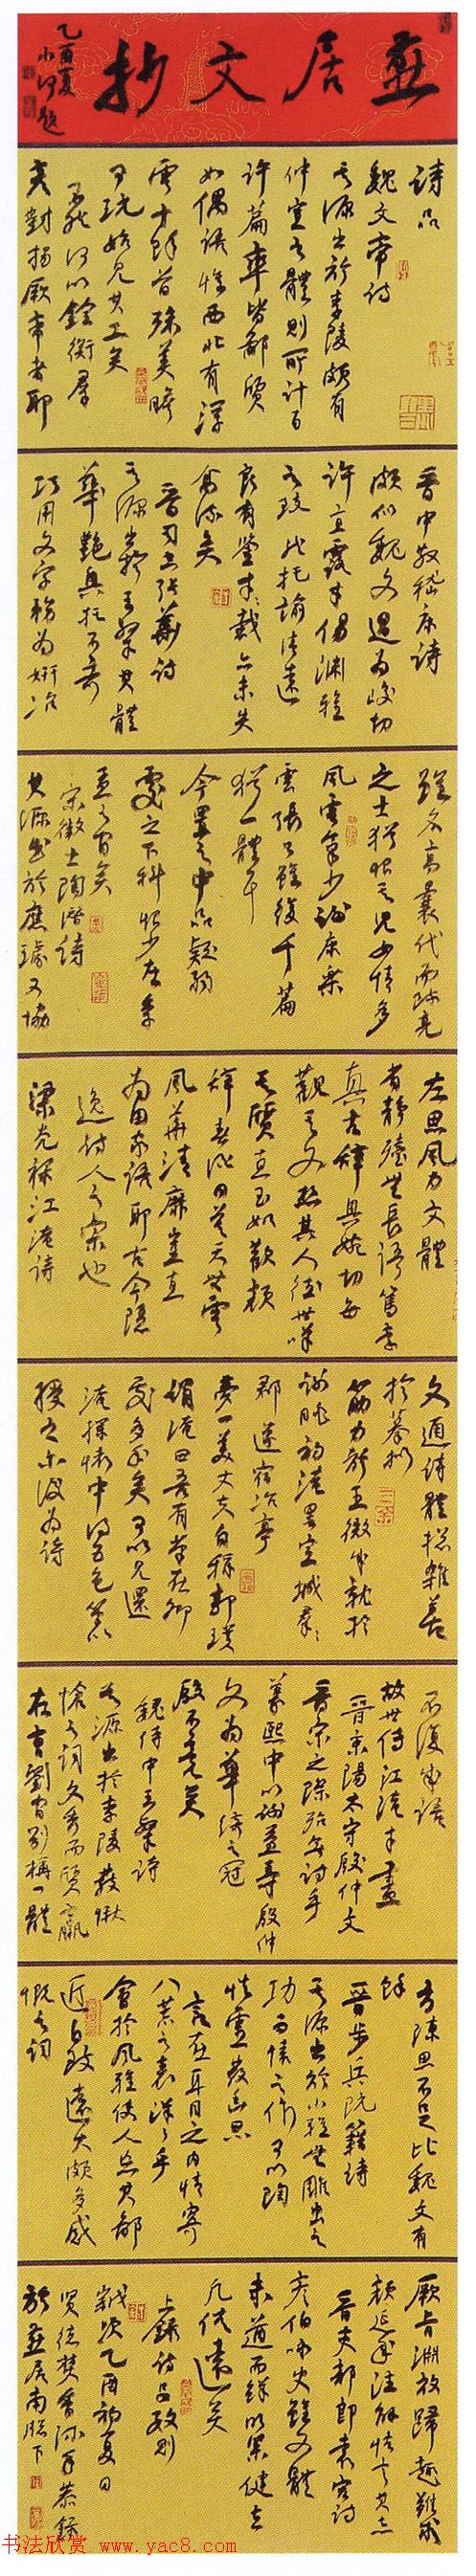 燕居文抄
乙酉夏
小河題
詩品
魏文帝詩
其源出於李陵頗有
仲宣之體則所計百
許篇率皆鄙質
如偶語惟西北有浮
雲十餘首殊美贍
可玩始見其工矣
不然何以銓衡群
彥對揚厥弟者耶
晉中散嵇康詩
頗似魏文過為峻切
訐直露才傷淵雅
之致然托諭清遠
良有鑒才載亦未失
高流矣
晉司空張華詩
其源出於王粲其體
華艷興托不奇
巧用文字務為妍冶
雖名高曩代而疏亮
之士猶恨其兒女情多
風雲氣少謝康樂
雲張公雖復千篇
猶一體耳
今置之中品疑弱
處之下科恨少在季
孟之間矣
宋徵士陶潛詩
其源出於應璩又協
左思風力文體
省靜殆無長語篤意
真古辭興婉切每
觀其文想其人德世嘆
其質直至如歡顏
酌春酒日暮天無雲
風華清靡豈直
為田家語耶古今隱
逸詩人之宗也
梁光祿江淹詩
文通詩體總雜善
於摹擬
筋力於王微成就於
謝朓初淹罷宣城
郡遂宿冶亭
夢一美丈夫自稱郭璞
謂淹曰吾有筆在卿
處多年矣可以見還
淹探懷中得五色筆以
授之爾後為詩
不復成語
故世傳江淹才盡
晉東陽太守殷仲文
晉宋之際殆無詩乎
義熙中以謝益壽殷仲
文為華綺之冠
殷不競矣
魏侍中王粲詩
其源出於李陵發愀
愴之詞文秀而質羸
在曹劉間別構一體
方陳思不足比魏文有
餘
晉步兵阮籍詩
其源出於小雅無雕蟲之
功而詠懷之作可以陶
性靈發幽思
言在耳目之內情寄
八荒之表洋洋乎
會於風雅使人忘其鄙
近自致遠大頗多感
慨之詞
厥旨淵放歸趣難求
顏延年註解怯言其志
晉吏部郎袁宏詩
彥伯詠史雖文體
未遒而鮮明緊健去
凡俗遠矣
上錄詩品數則
歲次乙酉初夏日
於燕居南牕下
书法欣赏 www.yac8.com